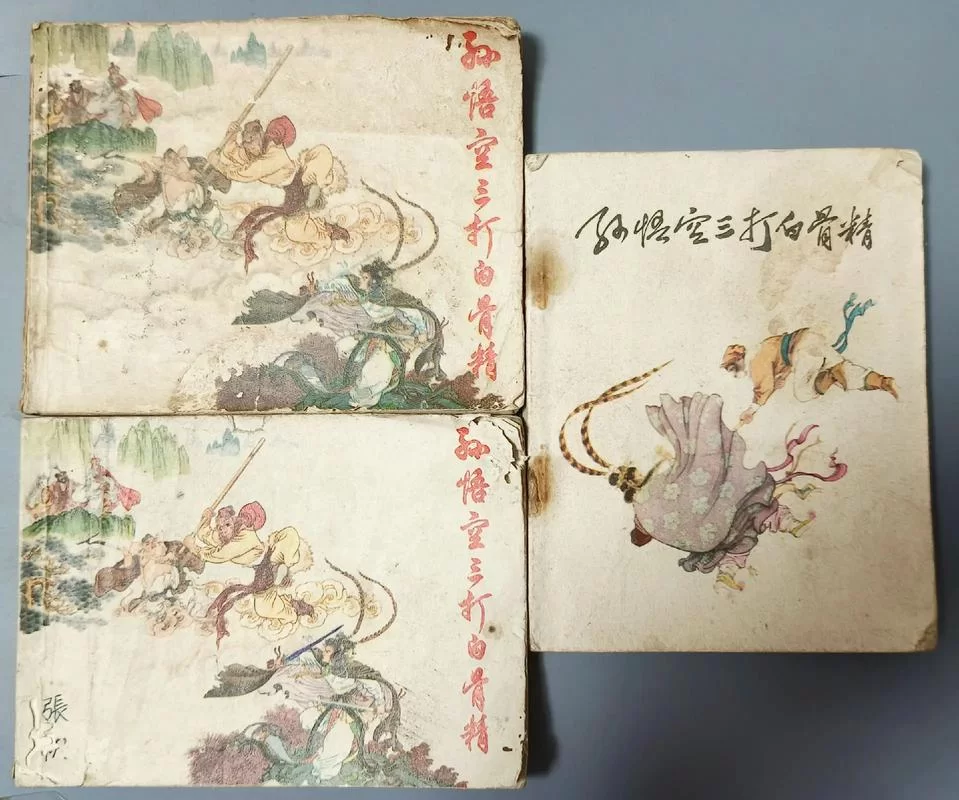 孙悟空三打白骨精
孙悟空三打白骨精
孙悟空三打白骨精
張